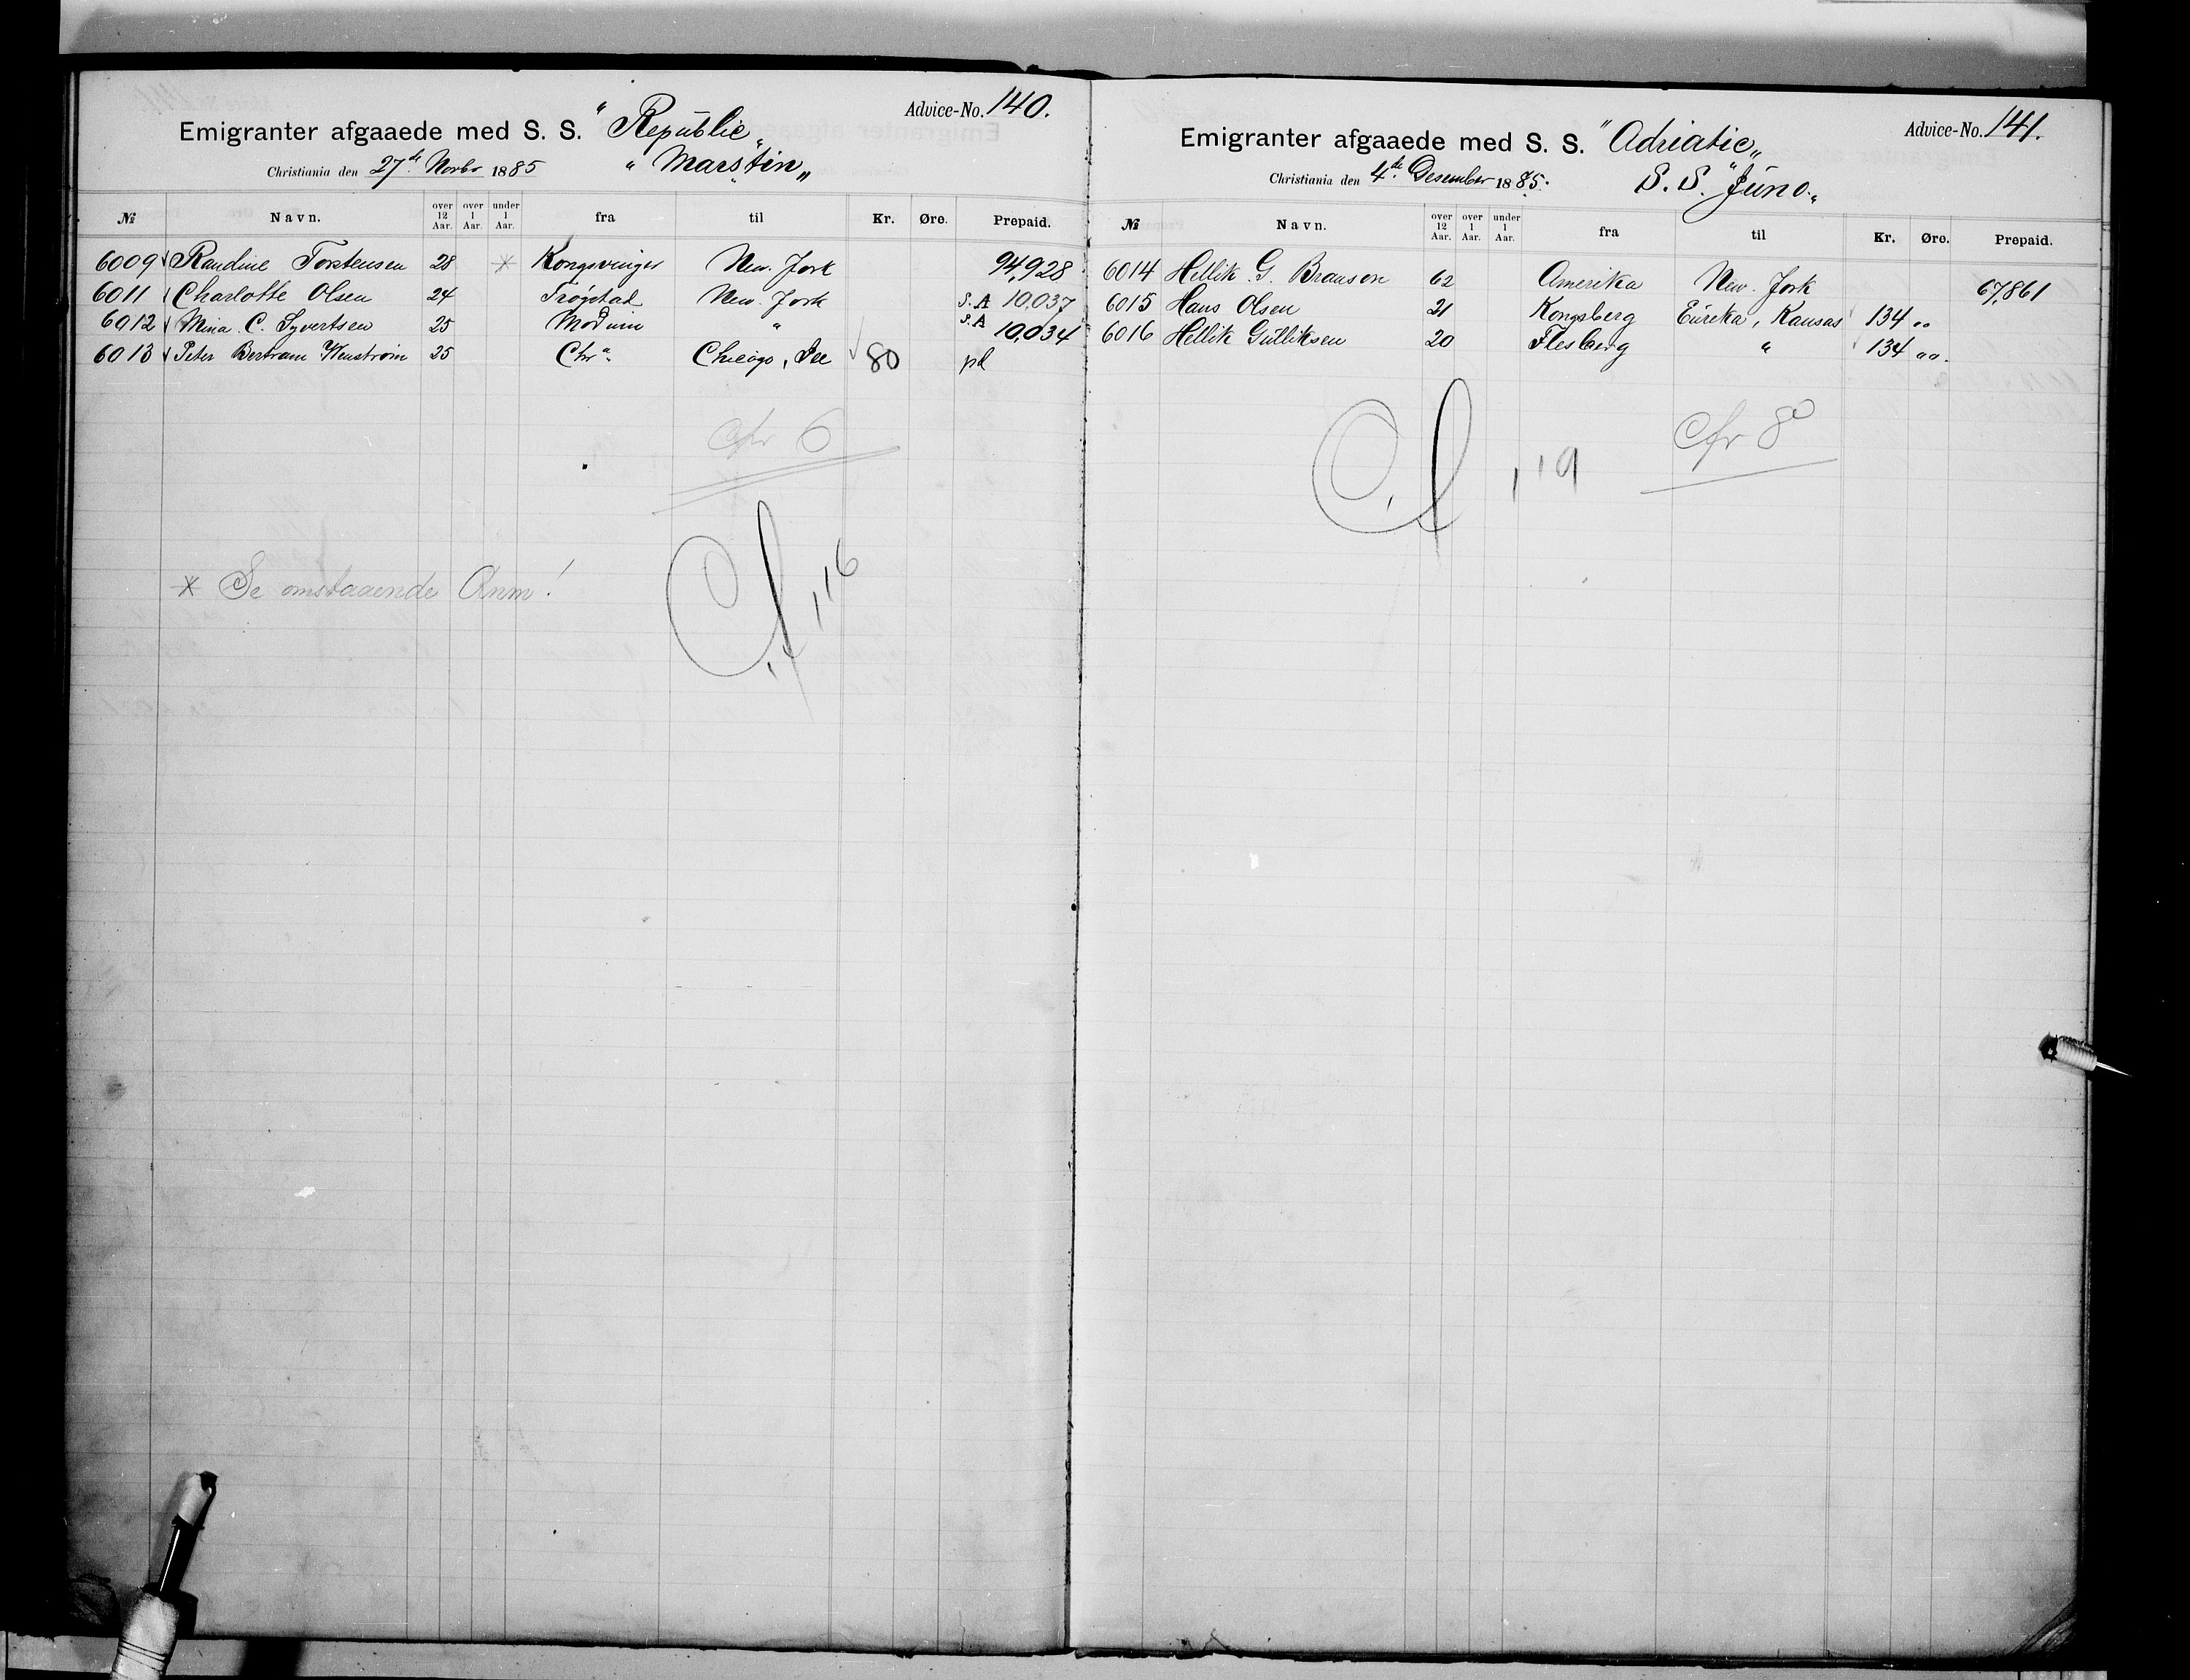 Advice-No. 140.
Emigranter afgaaede med S. S. "Republic"
Christiania den 27de Novbr 1885 "Marstin"
№ Navn. over 12 Aar. over 1 Aar. under 1 Aar. fra til Kr. Øre. Prepaid.
6009 Randine Torstensen 28 * Kongsvinger New. York 94,928
6011 Charlotte Olsen 24 Trøgstad New. York S.A 10,037
6012 Mina C. Syvertsen 25 Modum " S.A 10,034
6013 Peter Bertram Wenstrøm 25 Chra. Chicago, Ill 80 pd
Cfr 6
* Se omstaaende Anm!
Advice-No. 141.
Emigranter afgaaede med S. S. "Adriatic"
Christiania den 4de Desember 1885. S. S. "Juno."
№ Navn. over 12 Aar. over 1 Aar. under 1 Aar. fra til Kr. Øre. Prepaid.
6014 Hellik G. Branson 62 Amerika New. York 67,861
6015 Hans Olsen 21 Kongsberg Eureka, Kansas 134 "
6016 Hellik Gulliksen 20 Flesberg " 134 "
Cfr 8